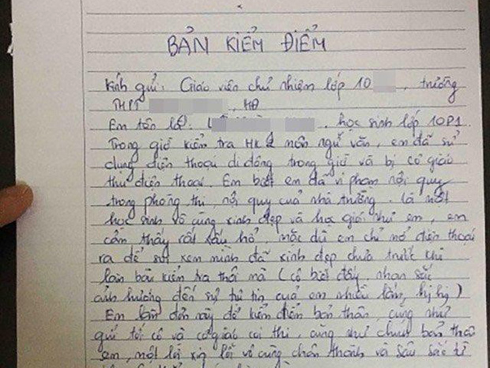 BẢN KIỂM ĐIỂM
Kính gửi: Giáo viên chủ nhiệm lớp 10 , trường
THPT , HN
Em tên là: , học sinh lớp 10P1
Trong giờ kiểm tra HK2 môn ngữ văn, em đã sử
dụng điện thoại di động trong giờ và bị cô giáo
thu điện thoại. Em biết em đã vi phạm nội quy
trong phòng thi, nội quy của nhà trường. Là một
học sinh vô cùng xinh đẹp và học giỏi như em, em
cảm thấy rất xấu hổ, mặc dù em chỉ mở điện thoại
ra để soi xem mình đã xinh đẹp chưa trước khi
làm bài kiểm tra thôi mà (cô biết đấy, nhan sắc
ảnh hưởng đến sự tự tin của em nhiều lắm, hị hị)
Em viết đơn này để kiểm điểm bản thân, cũng như
gửi tới cô và cô giáo coi thi, cũng như chính bản thân
em, một lời xin lỗi vô cùng chân thành và sâu sắc từ